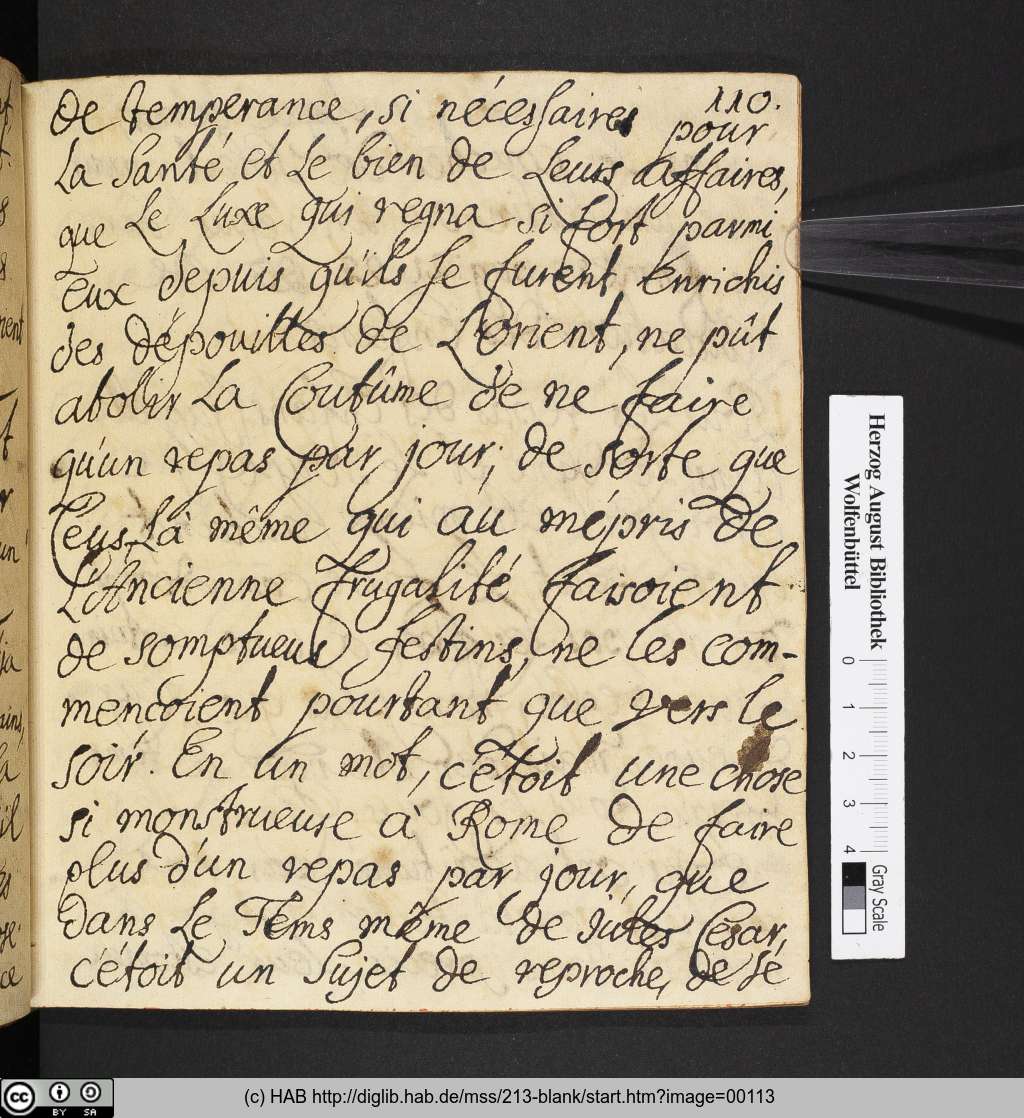 110.
de temperance, si nécessaires pour
La Santé et Le bien de Leurs affaires,
que Le Luxe qui regna si fort parmi
Eux depuis qu'ils se furent Enrichis
des dépouilles de L'Orient, ne pût
abolir La Coutûme de ne faire
qu'un repas par jour; de sorte que
Ceus-Là même qui au mépris de
L'Ancienne frugalité faisoient
de somptueus festins, ne les com-
mencoient pourtant que vers le
soir. En un mot, c'étoit une chose
si monstrueuse à Rome de faire
plus d'un repas par jour, que
dans Le Tems même de Jules Cesar,
c'étoit un Sujet de reproche, de se
Herzog August Bibliothek
Wolfenbüttel
0 1 2 3 4
Gray Scale
cc BY SA
(c) HAB http://diglib.hab.de/mss/213-blank/start.htm?image=00113